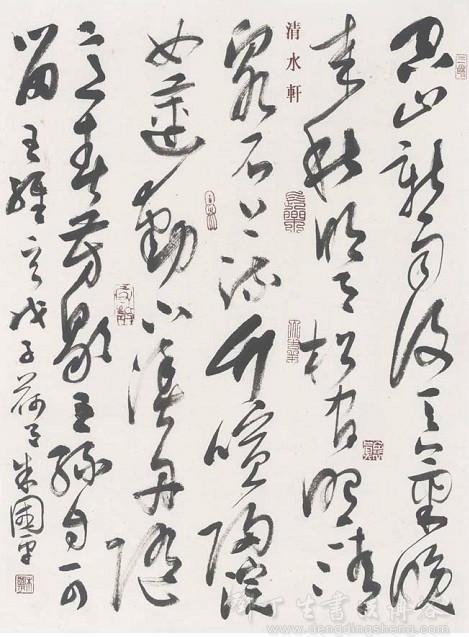 空山新雨後天氣晚
來秋明月松間照清
清水軒
泉石上流竹喧歸浣
女蓮動下漁舟隨
意春芳歇王孫自可
留 王維 戊子荷月朱國平
邓丁生书法博客
www.dengdingsheng.com